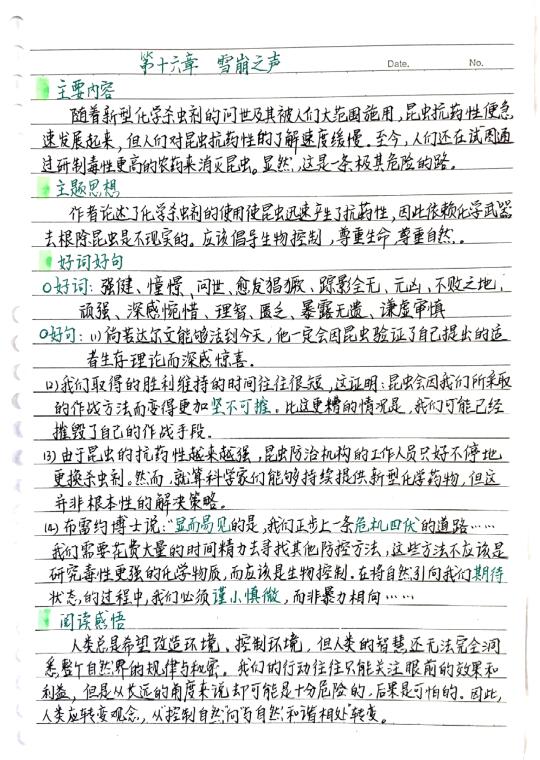 第十六章 雪崩之声
Date. No.
主要内容
随着新型化学杀虫剂的问世及其被人们大范围施用,昆虫抗药性便急
速发展起来,但人们对昆虫抗药性的了解速度缓慢。至今,人们还在试图通
过研制毒性更高的农药来消灭昆虫。显然,这是一条极其危险的路。
主题思想
作者论述了化学杀虫剂的使用使昆虫迅速产生了抗药性,因此依赖化学武器
去根除昆虫是不现实的。应该倡导生物控制,尊重生命,尊重自然。
好词好句
○好词:强健、憧憬、问世、愈发猖獗、踪影全无、元凶、不败之地、
顽强、深感惋惜、理智、匮乏、暴露无遗、谦虚审慎
○好句:(1)倘若达尔文能够活到今天,他一定会因昆虫验证了自己提出的适
者生存理论而深感惊喜。
(2)我们取得的胜利维持的时间往往很短,这证明:昆虫会因我们所采取
的作战方法而变得更加坚不可摧。比这更糟的情况是,我们可能已经
摧毁了自己的作战手段。
(3)由于昆虫的抗药性越来越强,昆虫防治机构的工作人员只好不停地
更换杀虫剂。然而,就算科学家们能够持续提供新型化学药物,但这
并非根本性的解决策略。
(4)布雷约博士说:“显而易见的是,我们正步上一条危机四伏”的道路……
我们需要花费大量的时间精力去寻找其他防控方法,这些方法不应该是
研究毒性更强的化学物质,而应该是生物控制。在将自然引向我们期待
状态的过程中,我们必须谨小慎微,而非暴力相向……
阅读感悟
人类总是希望改造环境、控制环境,但人类的智慧还无法完全洞
悉整个自然界的规律与秘密。我们的行动往往只能关注眼前的效果和
利益,但是从长远的角度来说却可能是十分危险的,后果是可怕的。因此,
人类应转变观念,从“控制自然”向“与自然和谐相处”转变。